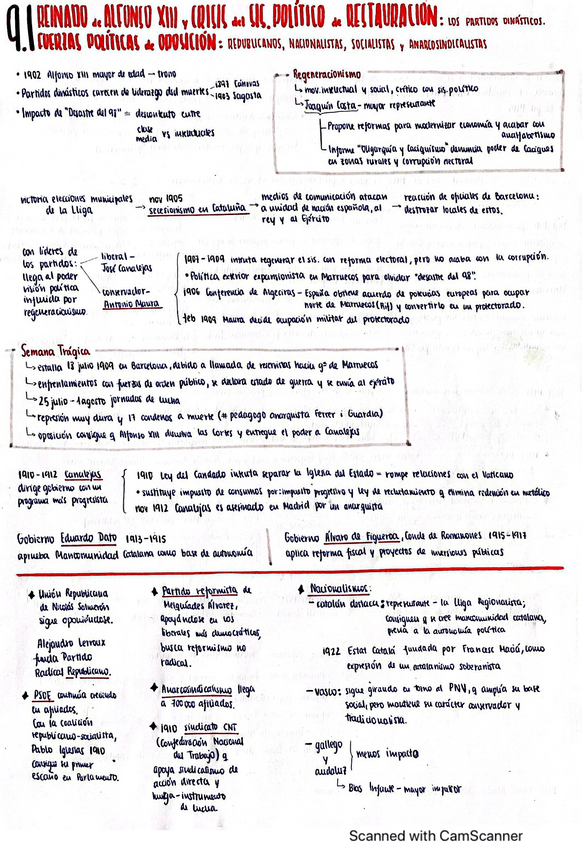 9.1 REINADO de ALFONSO XIII y CRISIS del SIS. POLÍTICO de RESTAURACIÓN: LOS PARTIDOS DINÁSTICOS.
FUERZAS POLÍTICAS de OPOSICIÓN: REPUBLICANOS, NACIONALISTAS, SOCIALISTAS y ANARCOSINDICALISTAS
• 1902 Alfonso XIII mayor de edad — trono
• Partidos dinásticos carecen de liderazgo del muertes
1897 Cánovas
1903 Sagasta
• Impacto de "Desastre del 98" = descontento entre
clase media vs intelectuales
Regeneracionismo
↳ mov. intelectual y social, crítico con sis. político
↳ Joaquín Costa - mayor representante
Propone reformas para modernizar economía y acabar con
analfabetismo
Informe "Oligarquía y Caciquismo" denuncia poder de Caciques
en zonas rurales y corrupción electoral
victoria elecciones municipales
de la Lliga
→ nov 1905
secesionismo en Cataluña
→ medios de comunicación atacan
a unidad de nación española, al
rey y al Ejército
→ reacción de oficiales de Barcelona:
destrozar locales de estos.
con líderes de
los partidos:
llega al poder
visión política
influida por
regeneracionismo
liberal -
José Canalejas
conservador -
Antonio Maura
1907 - 1909 intenta regenerar el sis. con reforma electoral, pero no acaba con la corrupción.
• Política exterior expansionista en Marruecos para olvidar "desastre del 98".
1906 Conferencia de Algeciras - España obtiene acuerdo de potencias europeas para ocupar
norte de Marruecos (Rif) y convertirlo en un protectorado.
feb 1909 Maura decide ocupación militar del protectorado
Semana Trágica
↳ estalla 13 julio 1909 en Barcelona, debido a llamada de reservistas hacia gª de Marruecos
↳ enfrentamientos con fuerzas de orden público, se declara estado de guerra y se envía al ejército
↳ 25 julio - 1 agosto jornadas de lucha
↳ represión muy dura y 17 condenas a muerte (# pedagogo anarquista Ferrer i Guardia)
↳ oposición consigue q Alfonso XIII disuelva las Cortes y entregue el poder a Canalejas
1910 - 1912 Canalejas
dirige gobierno con un
programa más progresista
1910 Ley del Candado intenta separar la Iglesia del Estado = rompe relaciones con el Vaticano
• sustituye impuesto de consumos por: impuesto progresivo y ley de reclutamiento q elimina redención en metálico
nov 1912 Canalejas es asesinado en Madrid por un anarquista
Gobierno Eduardo Dato 1913 - 1915
aprueba Mancomunidad Catalana como base de autonomía
Gobierno Álvaro de Figueroa, Conde de Romanones 1915 - 1917
aplica reforma fiscal y proyectos de inversiones públicas
✦ Unión Republicana
de Nicolás Salmerón
sigue oponiéndose.
Alejandro Lerroux
funda Partido
Radical Republicano.
✦ PSOE continúa creciendo
en afiliados.
Con la coalición
republicano-socialista,
Pablo Iglesias 1910
consigue su primer
escaño en Parlamento.
✦ Partido reformista de
Melquíades Álvarez,
apoyándose en los
liberales más democráticos,
busca reformismo no
radical.
✦ Anarcosindicalismo llega
a 700 000 afiliados.
✦ 1910 sindicato CNT
(Confederación Nacional
del Trabajo) q
apoya sindicalismo de
acción directa y
huelga - instrumento
de lucha.
✦ Nacionalismos:
- catalán destaca: representante - la Lliga Regionalista;
consiguen q se cree mancomunidad catalana,
previa a la autonomía política
1922 Estat Català fundada por Francesc Macià, como
expresión de un catalanismo soberanista
- vasco: sigue girando en torno al PNV, q amplía su base
social, pero mantiene su carácter conservador y
tradicionalista.
- gallego
y
andaluz
menos impacto
↳ Blas Infante - mayor impulsor
Scanned with CamScanner